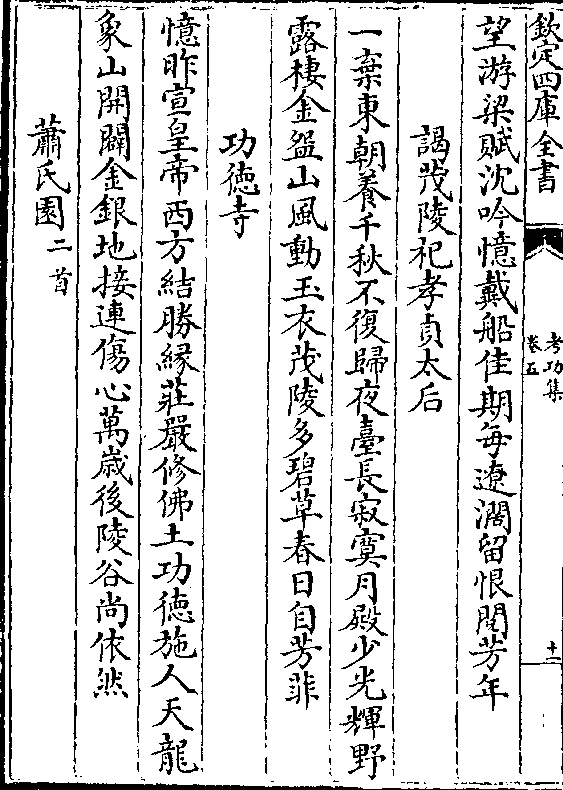 欽定四庫全書
考功集
卷五
十二
望游梁賦沈吟憶戴船佳期每遼濶留恨閱芳年
謁茂陵祀孝貞太后
一棄東朝養千秋不復歸夜臺長寂寞月殿少光輝野
露棲金盌山風動玉衣茂陵多碧草春日自芳菲
功徳寺
憶昨宣皇帝西方結勝縁莊嚴修佛土功徳施人天龍
象山開闢金銀地接連傷心萬嵗後陵谷尚依然
蕭氏園二首